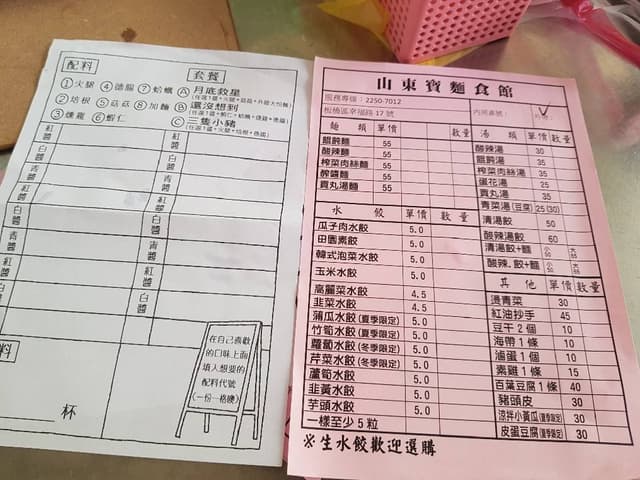 配料
套餐
①火腿 ④德腸 ⑦蛤蠣
②培根 ⑤菇菇 ⑧加麵
③燻雞 ⑥蝦仁
Ⓐ月底救星
Ⓑ還沒想到
Ⓒ三隻小豬
紅醬
白醬
青醬
紅醬
白醬
青醬
紅醬
白醬
紅醬
白醬
青醬
紅醬
白醬
青醬
紅醬
白醬
料
杯
在自己喜歡
的口味上面
填入想要的
配料代號
(一份一格噢)
山東寶麵食館
服務專線：2250-7012
板橋區幸福路17號
內用桌號：
外帶：
麵 類 單價 數量
餛飩麵 55
酸辣麵 55
榨菜肉絲麵 55
酢醬麵 55
貢丸湯麵 55
水 餃 單價 數量
瓜子肉水餃 5.0
田園素餃 5.0
韓式泡菜水餃 5.0
玉米水餃 5.0
高麗菜水餃 4.5
韭菜水餃 4.5
蒲瓜水餃(夏季限定) 5.0
竹筍水餃(夏季限定) 5.0
蘿蔔水餃(冬季限定) 5.0
芹菜水餃(冬季限定) 5.0
蘆筍水餃 5.0
韭黃水餃 5.0
芋頭水餃 5.0
一樣至少5粒
湯 類 單價 數量
酸辣湯 30
餛飩湯 35
榨菜肉絲湯 35
蛋花湯 25
貢丸湯 35
青菜湯(豆腐) 25(30)
清湯餃 50
酸辣湯餃 60
清湯餃+麵
酸辣.餃+麵
其 他 單價 數量
燙青菜 30
紅油抄手 45
豆干2個 10
海帶1條 10
滷蛋1個 10
素雞1條 15
百葉豆腐1條 40
豬頭皮 30
涼拌小黃瓜(夏季限定) 30
皮蛋豆腐(夏季限定) 30
※生水餃歡迎選購